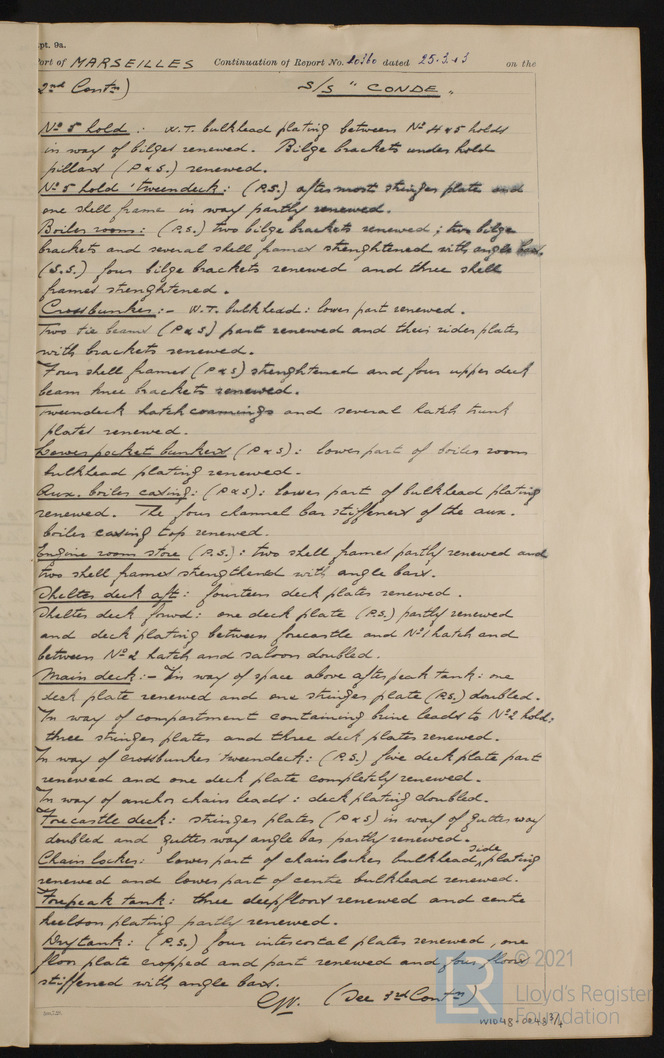 pt. 9a.
ort of MARSEILLES Continuation of Report No. dated 25.3.13 on the
2nd Contn) S/S "CONDE"
No 5 hold : W.T. bulkhead plating between No 4 & 5 holds
in way of bilges renewed. Bilge brackets under hold
pillars (P & S.) renewed.
No 5 hold 'tweendeck : (P.S.) aftermost stringer plate and
one shell frame in way partly renewed.
Boiler room : (P.S.) two bilge brackets renewed ; two bilge
brackets and several shell frames strenghtened with angle bar.
(S.S.) four bilge brackets renewed and three shell
frames strenghtened.
Crossbunker :- W.T. bulkhead : lower part renewed.
Two tie beams (P & S) part renewed and their rider plates
with brackets renewed.
Four shell frames (P & S) strenghtened and four upper deck
beam knee brackets renewed.
Tweendeck hatch coamings and several hatch trunk
plates renewed.
Lower pocket bunkers (P & S) : lower part of boiler room
bulkhead plating renewed.
Aux. boiler casing : (P & S) : lower part of bulkhead plating
renewed. The four channel bar stiffeners of the aux.
boiler casing top renewed.
Engine room store (P.S.) : two shell frames partly renewed and
two shell frames strengthened with angle bars.
Shelter deck aft : fourteen deck plates renewed.
Shelter deck forwd : one deck plate (P.S.) partly renewed
and deck plating between forecastle and No 1 hatch and
between No 2 hatch and saloon doubled.
Main deck :- In way of space above afterpeak tank : one
deck plate renewed and one stringer plate (P.S.) doubled.
In way of compartment containing brine leads to No 2 hold :
three stringer plates and three deck plates renewed.
In way of crossbunker 'tweendeck : (P.S.) five deck plate part
renewed and one deck plate completely renewed.
In way of anchor chain leads : deck plating doubled.
Forecastle deck : stringer plates (P & S) in way of gutter way
doubled and gutter way angle bar partly renewed.
Chain locker : lower part of chain locker bulkhead, side plating
renewed and lower part of centre bulkhead renewed.
Forepeak tank : three deepfloors renewed and centre
keelson plating partly renewed.
Drytank : (P.S.) four intercostal plates renewed, one
floor plate cropped and part renewed and four floors
stiffened with angle bars.
(See 3rd Contn)
© 2021
Lloyd's Register
Foundation
W1048-0048 3/4